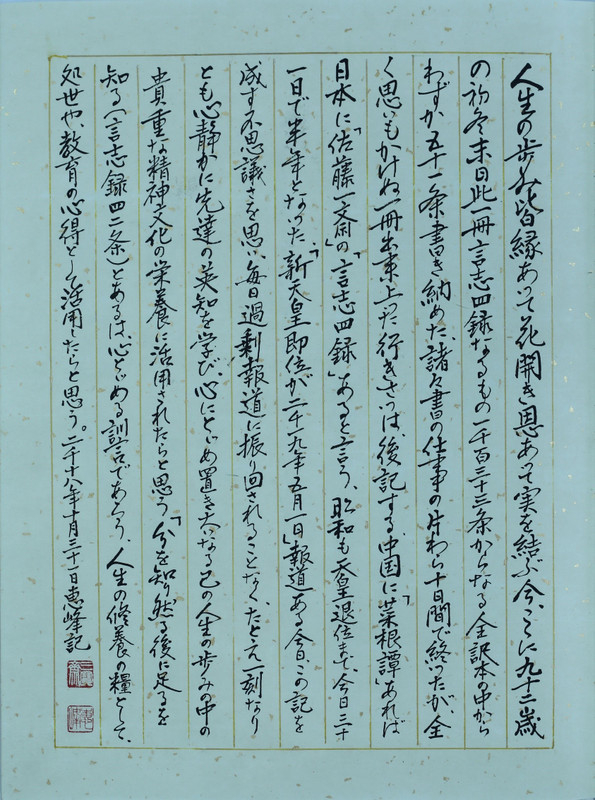 人生の歩み皆縁あって花開き恩あって実を結ぶ今、ここに九十二歳
の初冬末日此一冊言志四録なるもの一千百三十三条からなる全訳本の中から
わずか五十一条書き納めた、諸々書の仕事の片わら十日間で終ったが、全
く思いもかけぬ一冊出来上った行きさつは、後記する中国に「菜根譚」あれば
日本に「佐藤一斎」の「言志四録」あると言う、昭和も天皇退位まで、今日三十
一日で半年となった、「新天皇即位が二千十九年五月一日」報道ある今日この記を
成す不思議さを思い毎日過剰報道に振り回されることなく、たとえ一刻なり
とも心静かに先達の英知を学び、心にとどめ置き大いなる己の人生の歩みの中の
貴重な精神文化の栄養に活用されたらと思う「分を知り然る後に足るを
知る」（言志録四二条）とあるは、心とどめる訓言であろう、人生の修養の糧として、
処世や、教育の心得として活用したらと思う。二千十八年十月三十一日恵峰記